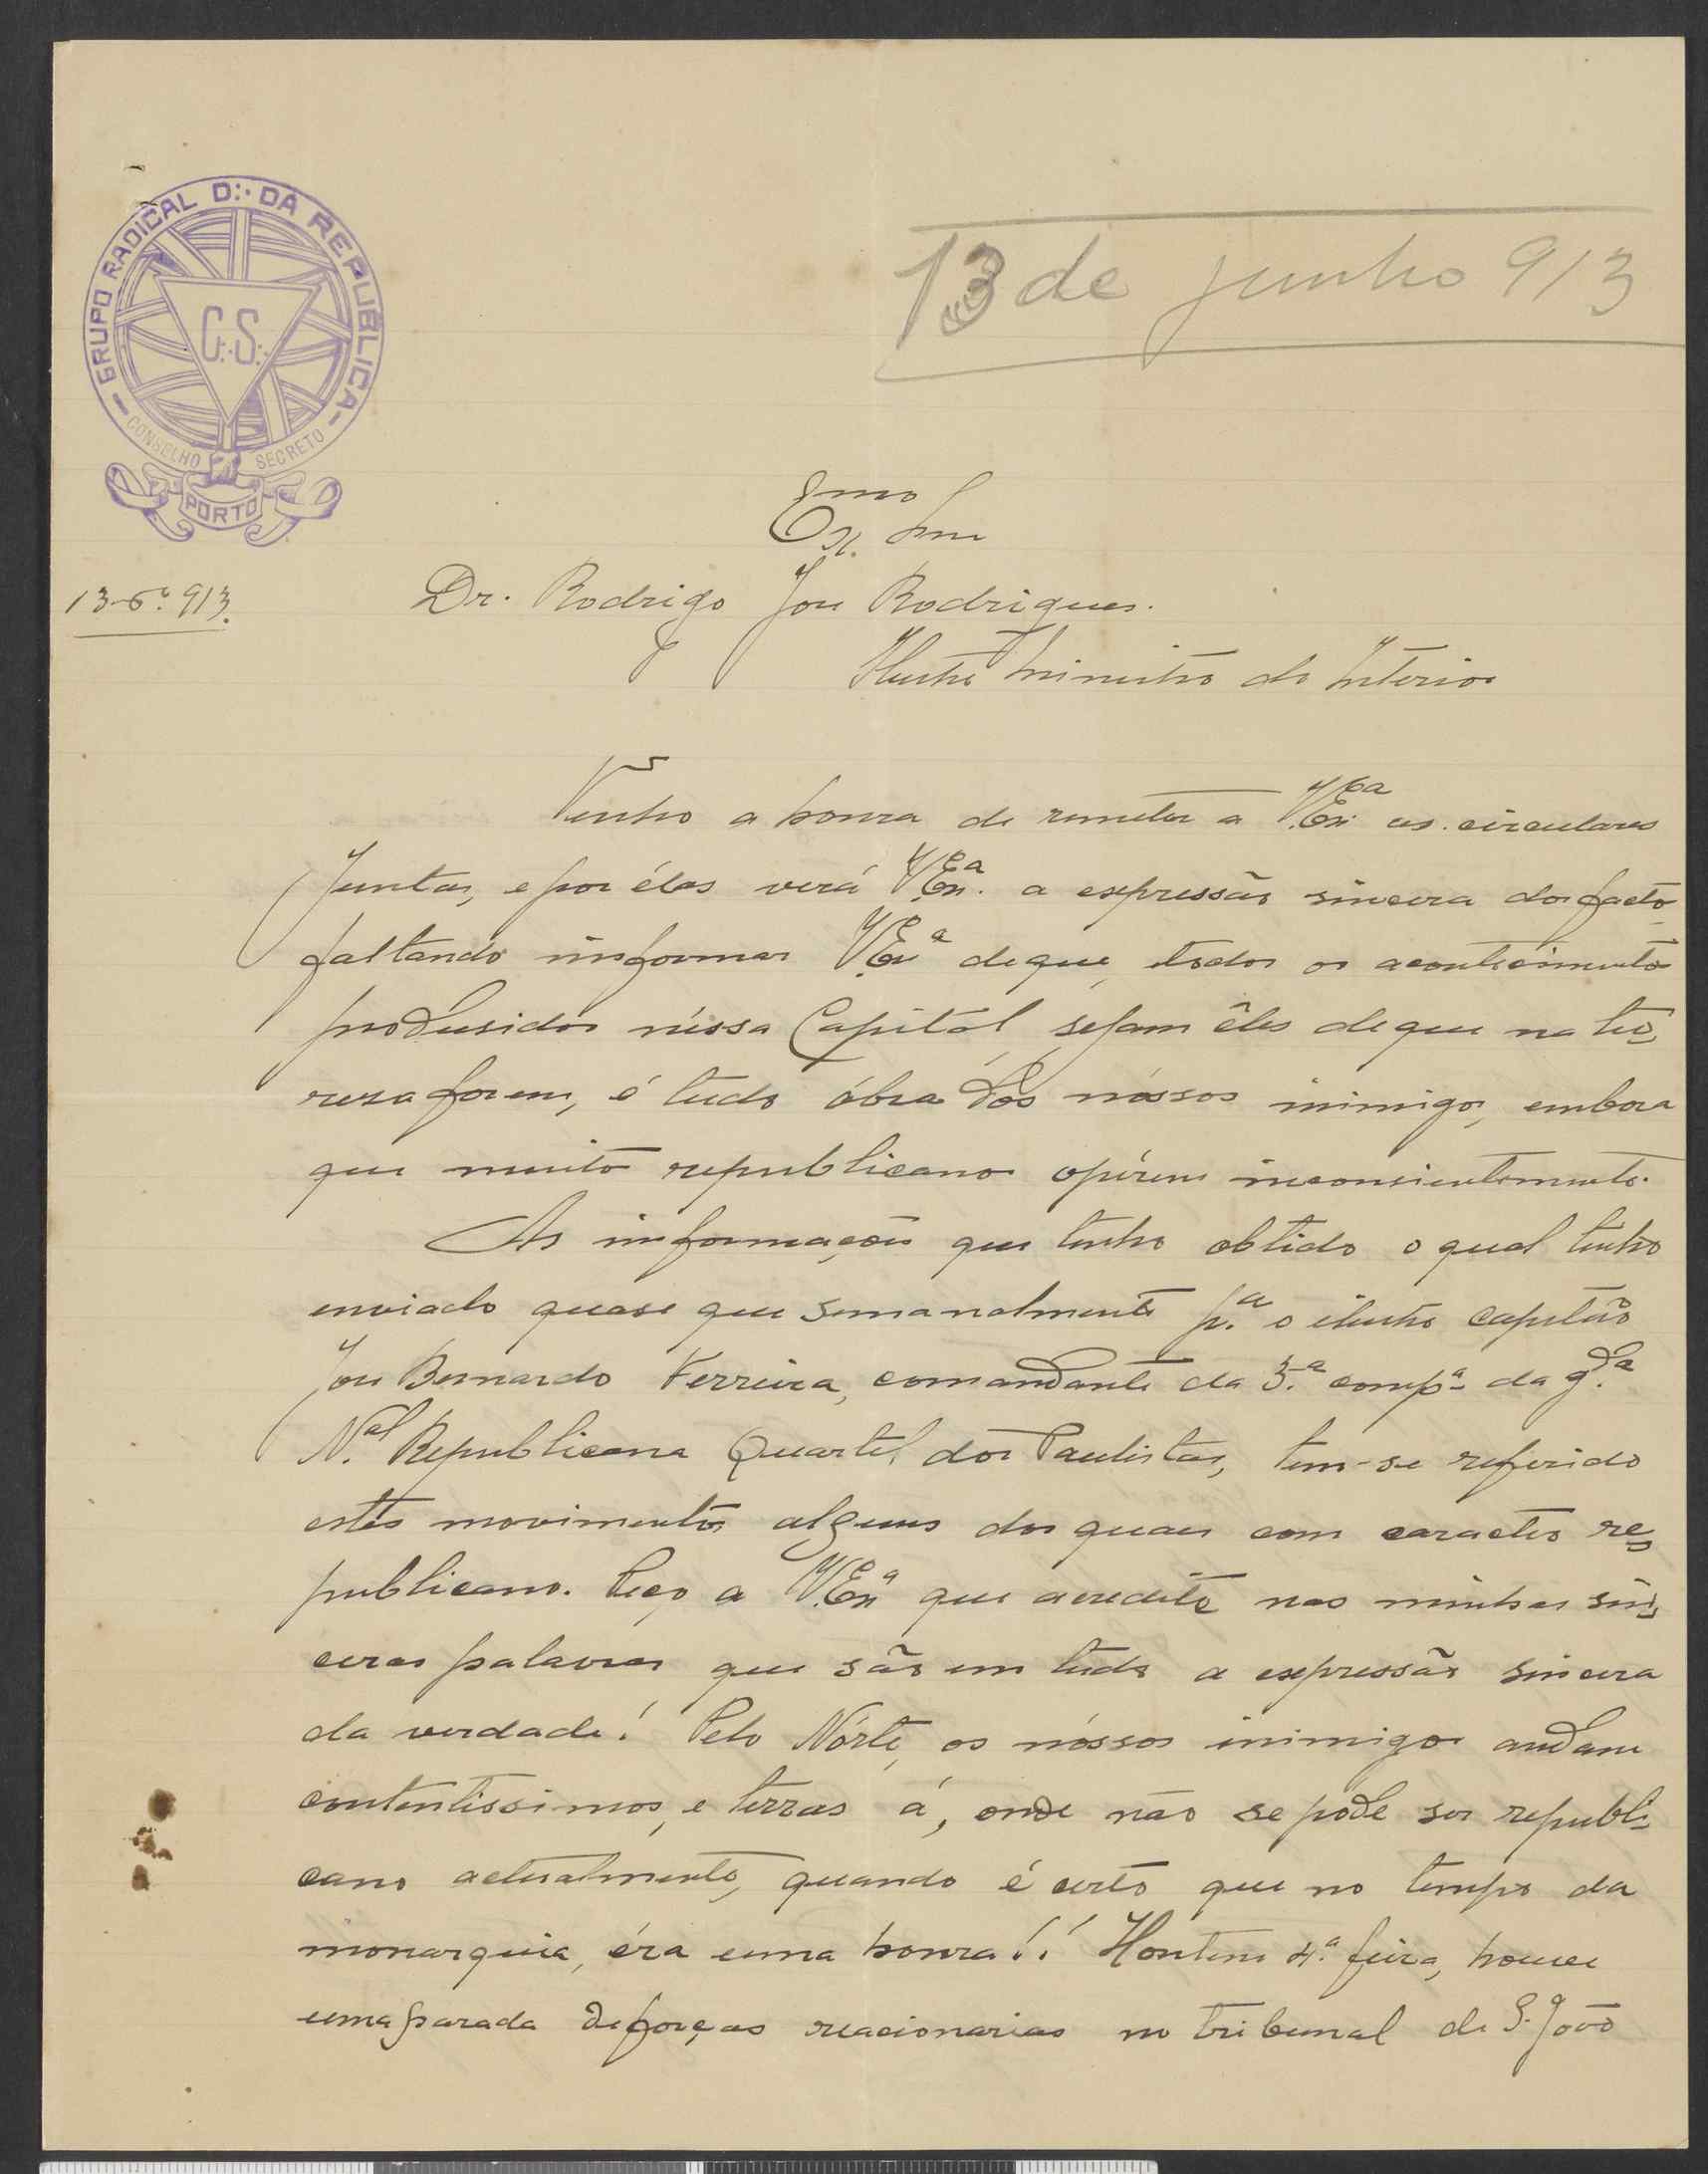 GRUPO RADICAL D:. DA REPUBLICA
C:. S:.
CONSELHO SECRETO
PORTO
13 de junho 913
Exmo Snr
13-6º 913.
Dr. Rodrigo José Rodrigues.
Ilustre Ministro do Interior
Tenho a honra de remeter a V. Exª as circulares
juntas, e por élas verá V. Exª. a expressão sincera dos factos
faltando informar V. Exª de que, todos os acontecimentos
produsidos néssa Capital, sejam êles de que natu-
resa forem, é tudo óbra dos nóssos inimigos, embora
que muitos republicanos opérem inconsientemente.
As informações que tenho obtido o qual tenho
enviado quase que semanalmente p.ª o ilustre capitão
José Bernardo Ferreira, comandante da 3.ª comp.ª da g.da
N.al Republicana Quartel dos Paulistas, tem-se referido
estes movimentos alguns dos quaes com caracter re-
publicano. Peço a V. Exª que acredite nas minhas sin-
ceras palavras que são em tudo a expressão sincera
da verdade! Pelo Nórte, os nóssos inimigos andam
contentissimos, e terras á, onde não se póde ser republi-
cano actualmente, quando é certo que no tempo da
monarquia, éra uma honra!! Hontem 4.ª feira, houve
uma parada de forças reacionarias no tribunal de S. João